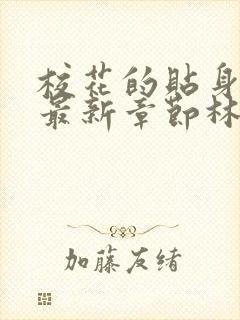 校花的貼身
最新章節林
加藤友緒